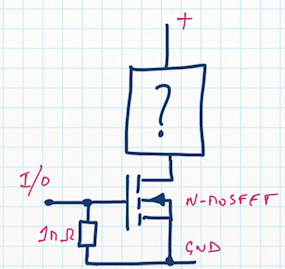 +
?
I/O
N-MOSFET
1MΩ
GND